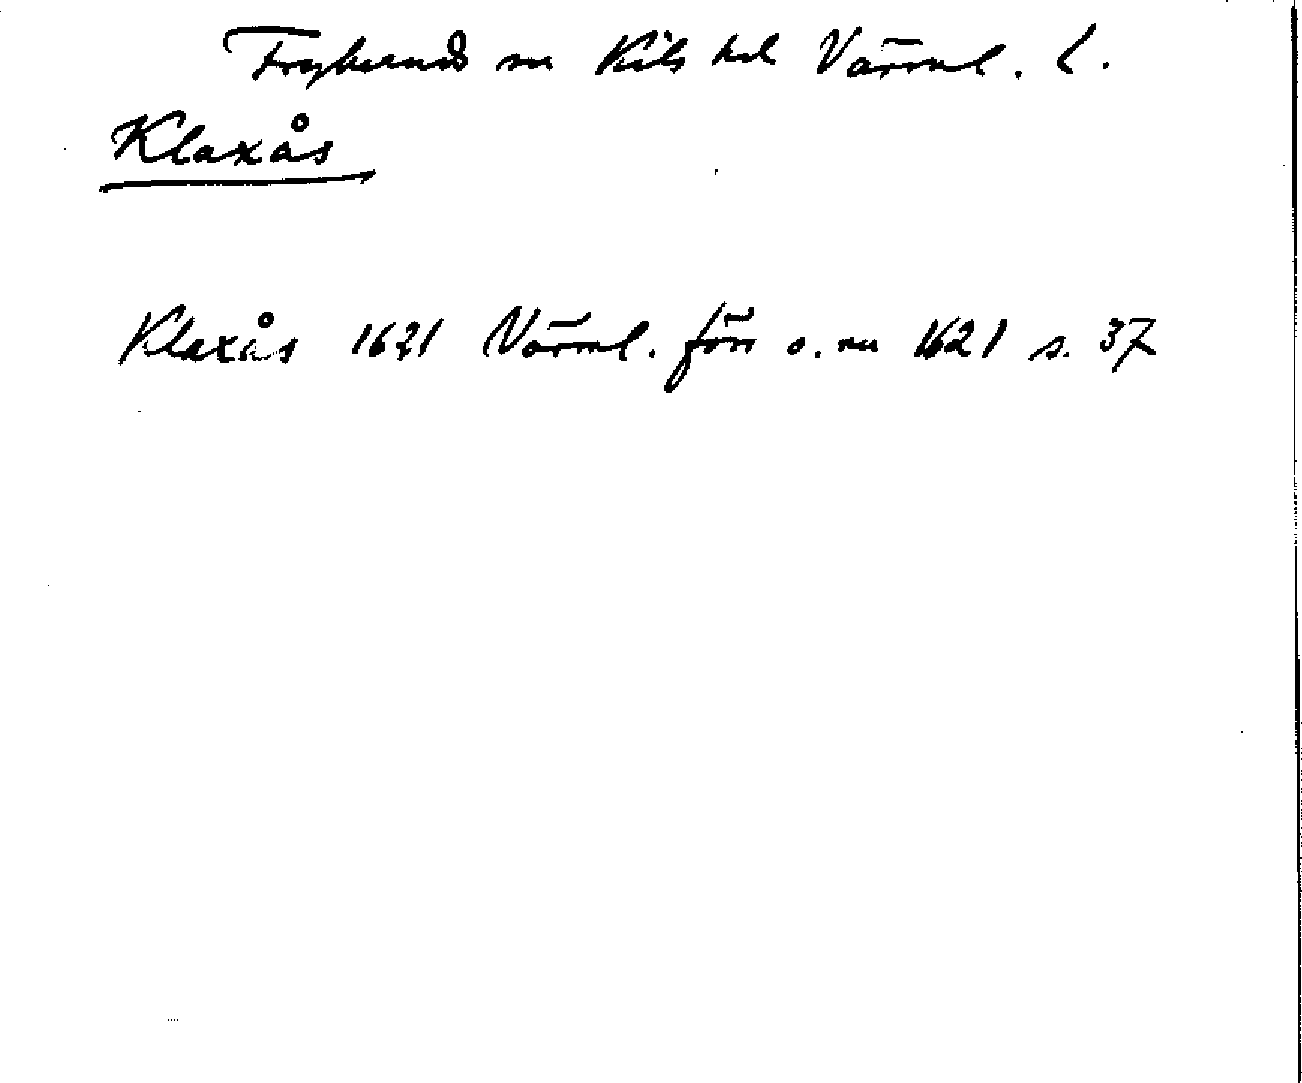 Frykerud sn Kils hd Värml. L.
Klaxås
Klaxås 1621 Värml. förr o. nu 1621 s. 37